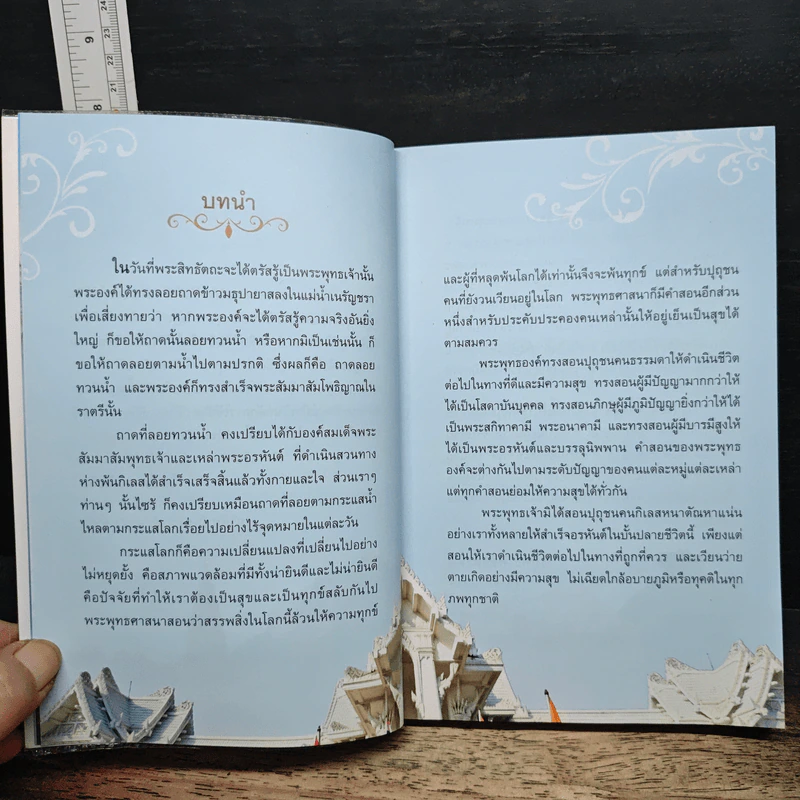 บทนำ
ในวันที่พระสิทธัตถะจะได้ตรัสรู้เป็นพระพุทธเจ้านั้น
พระองค์ได้ทรงลอยถาดข้าวมธุปายาสลงในแม่น้ำเนรัญชรา
เพื่อเสี่ยงทายว่า หากพระองค์จะได้ตรัสรู้ความจริงอันยิ่ง
ใหญ่ ก็ขอให้ถาดนั้นลอยทวนน้ำ หรือหากมิเป็นเช่นนั้น ก็
ขอให้ถาดลอยตามน้ำไปตามปรกติ ซึ่งผลก็คือ ถาดลอย
ทวนน้ำ และพระองค์ก็ทรงสำเร็จพระสัมมาสัมโพธิญาณใน
ราตรีนั้น
ถาดที่ลอยทวนน้ำ คงเปรียบได้กับองค์สมเด็จพระ
สัมมาสัมพุทธเจ้าและเหล่าพระอรหันต์ ที่ดำเนินสวนทาง
ห่างพ้นกิเลสได้สำเร็จเสร็จสิ้นแล้วทั้งกายและใจ ส่วนเราๆ
ท่านๆ นั้นไซร้ ก็คงเปรียบเหมือนถาดที่ลอยตามกระแสน้ำ
ไหลตามกระแสโลกเรื่อยไปอย่างไร้จุดหมายในแต่ละวัน
กระแสโลกก็คือความเปลี่ยนแปลงที่เปลี่ยนไปอย่าง
ไม่หยุดยั้ง คือสภาพแวดล้อมที่มีทั้งน่ายินดีและไม่น่ายินดี
คือปัจจัยที่ทำให้เราต้องเป็นสุขและเป็นทุกข์สลับกันไป
พระพุทธศาสนาสอนว่าสรรพสิ่งในโลกนี้ล้วนให้ความทุกข์
และผู้ที่หลุดพ้นโลกได้เท่านั้นจึงจะพ้นทุกข์ แต่สำหรับปุถุชน
คนที่ยังวนเวียนอยู่ในโลก พระพุทธศาสนาก็มีคำสอนอีกส่วน
หนึ่งสำหรับประคับประคองคนเหล่านั้นให้อยู่เย็นเป็นสุขได้
ตามสมควร
พระพุทธองค์ทรงสอนปุถุชนคนธรรมดาให้ดำเนินชีวิต
ต่อไปในทางที่ดีและมีความสุข ทรงสอนผู้มีปัญญามากกว่าให้
ได้เป็นโสดาบันบุคคล ทรงสอนภิกษุผู้มีภูมิปัญญายิ่งกว่าให้ได้
เป็นพระสกิทาคามี พระอนาคามี และทรงสอนผู้มีบารมีสูงให้
ได้เป็นพระอรหันต์และบรรลุนิพพาน คำสอนของพระพุทธ
องค์จะต่างกันไปตามระดับปัญญาของคนแต่ละหมู่แต่ละเหล่า
แต่ทุกคำสอนย่อมให้ความสุขได้ทั่วกัน
พระพุทธเจ้ามิได้สอนปุถุชนคนกิเลสหนาตัณหาแน่น
อย่างเราทั้งหลายให้สำเร็จอรหันต์ในบั้นปลายชีวิตนี้ เพียงแต่
สอนให้เราดำเนินชีวิตต่อไปในทางที่ถูกที่ควร และเวียนว่าย
ตายเกิดอย่างมีความสุข ไม่เฉียดใกล้อบายภูมิหรือทุคติในทุก
ภพทุกชาติ
9
8
24
23
22
21